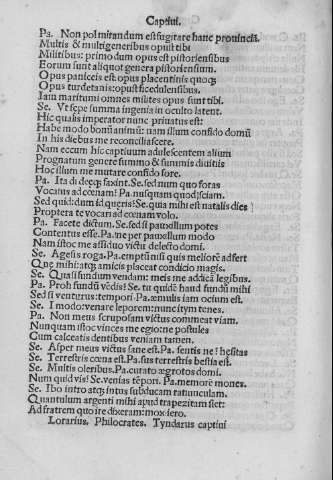 Captiui.
Pa. Non pol mirandum est fugitare hanc prouinciā.
Multis & multigeneribus opus ti bi
Militibus: primodum opus est pistoriensibus
Eorum sunt aliquot genera pistoriensium.
Opus paniceis est opus placentinis quoq;
Opus turdetanis: opust ficedulensibus.
Iam maritumi omnes milites opus sunt tibi.
Se. Vt sepe summa ingenia in occulto latent.
Hic qualis imperator nunc priuatus est:
Habe modo bonū animū: nam illum confido domū
In his diebus me reconciliascere.
Nam eccum hic captiuum adulescentem alium
Prognatum genere summo & summis diuitiis
Hoc illum me mutare confido fore.
Pa. Ita di deeq; faxint. Se. sed num quo foras
Vocatus ad cœnam? Pa. nusquam quod sciam.
Sed quid: dum id queris? Se. quia mihi est natalis dies
Propterea te vocari ad cœnam volo.
Pa. Facete dictum. Se. sed si pauxillum potes
Contentus esse. Pa. ne per pauxillum modo
Nam istoc me assiduo victu delecto domi.
Se. Agesis roga. Pa. emptū nisi quis meliorē adfert
Que mihi: atq; amicis placeat condicio magis.
Se. Quasi fundum vendam: meis me addicā legibus.
Pa. Proh fundū vēdis? Se. tu quidē haud fundū mihi
Sed si venturus: tempori. Pa. æmulis iam ocium est.
Se. I modo: venare leporem: nunc itym tenes.
Pa. Non meus scruposam victus commeat viam.
Nunquam istoc vinces me egio: ne postules
Cum calceatis dentibus veniam tamen.
Se. Asper meus victus sane est. Pa. sentis ne? hesitas
Se. Terrestris cœna est. Pa. sus terrestris bestia est.
Se. Multis oleribus. Pa. curato ægrotos domi.
Num quid vis? Se. venias tēpori. Pa. memorē mones.
Se. Ibo intro atq; intus subducam ratiunculam.
Quantulum argenti mihi apud trapezitam siet:
Ad fratrem quo ire dixeram: mox iero.
Lorarius. Philocrates. Tyndarus captiui